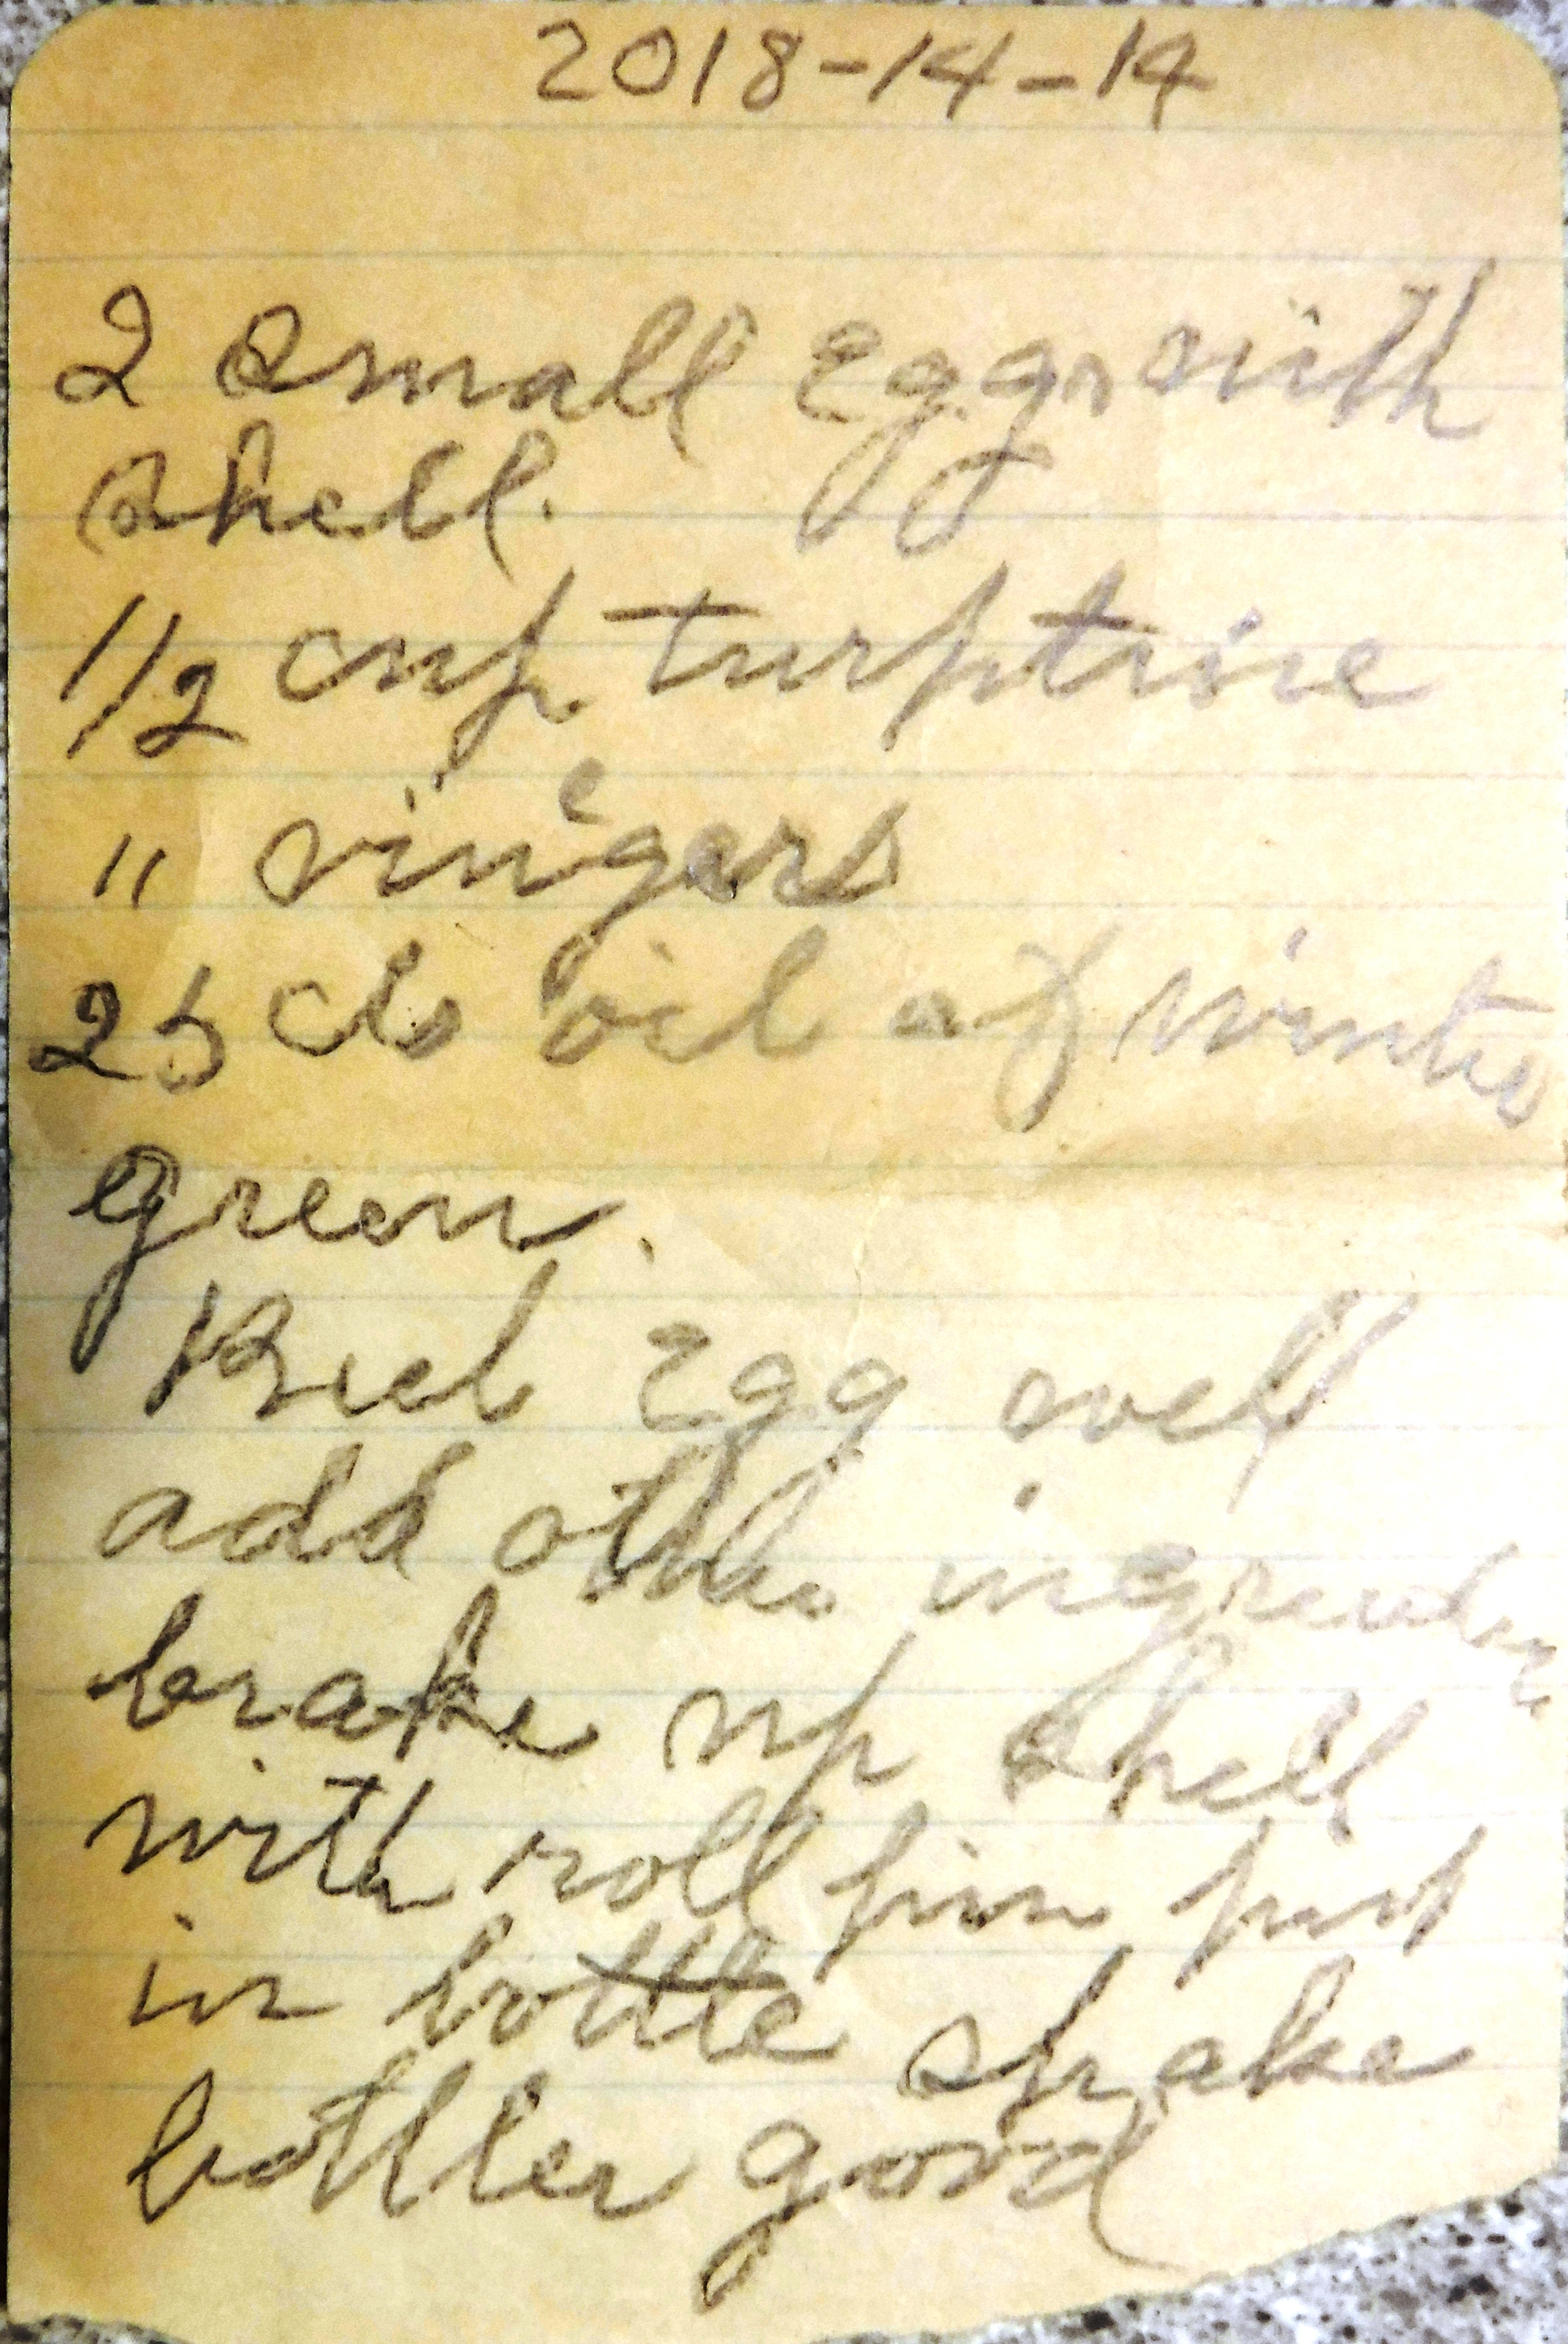 2018-14-14
2 small Eggs with
shell.
1/2 cup turptine
" vinegars
25 cts oil of winter
green.
Beet Egg well
add other ingredien
brake up shell
with roll pin put
in bottle shake
bottler good